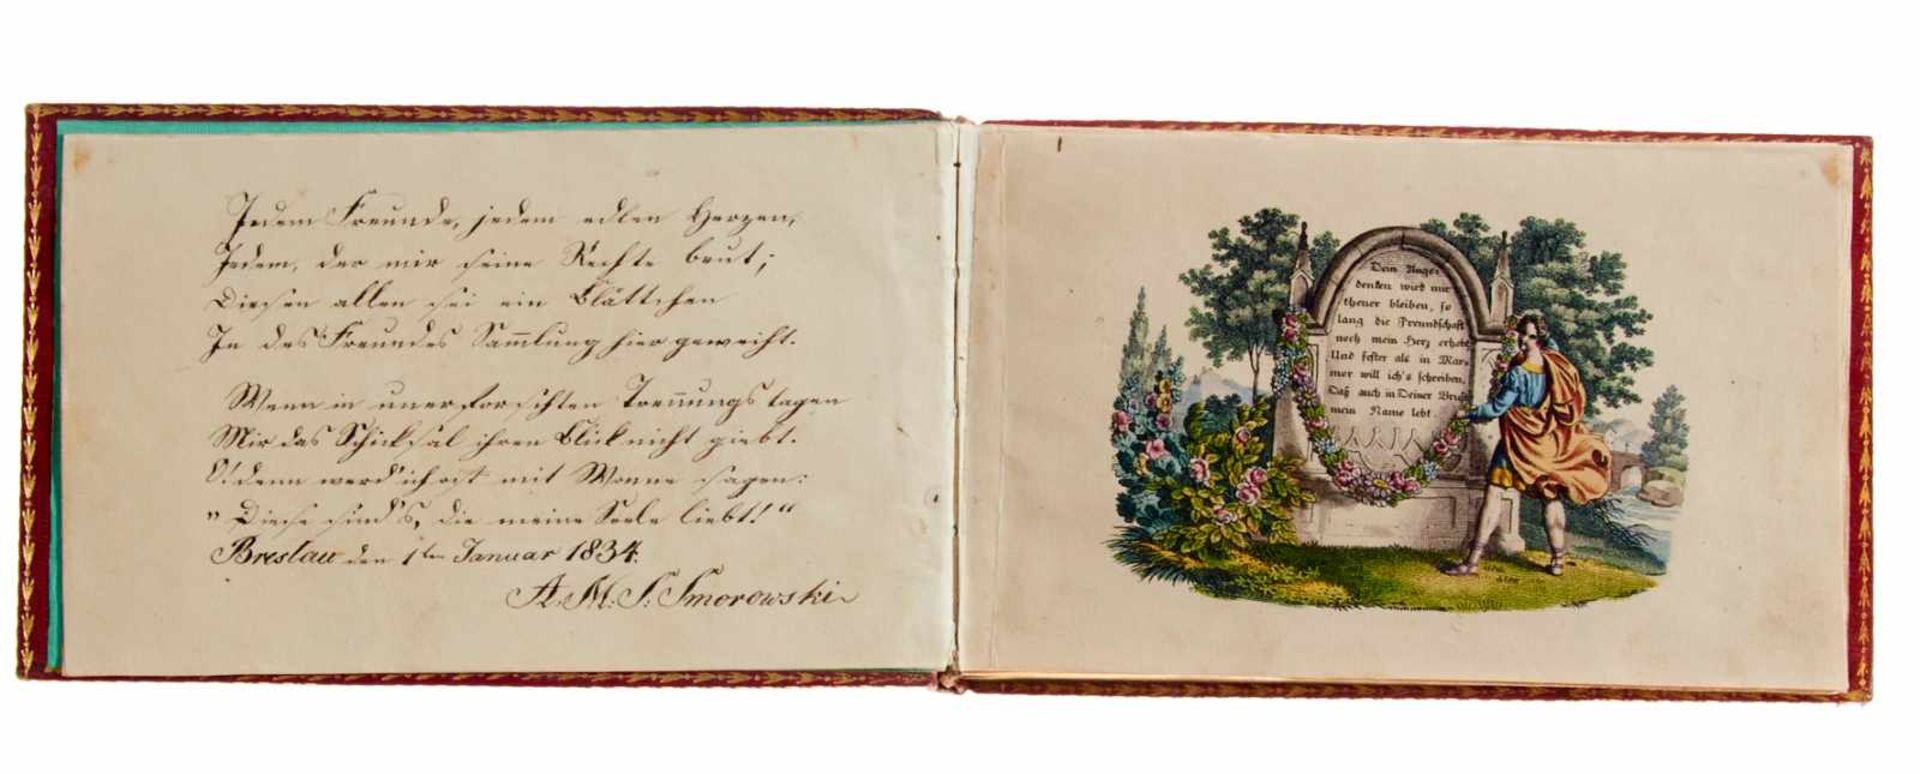 Jedem Freunde, jedem edlen Herzen,
Jedem, der mir seine Rechte beut;
Diesen allen sei ein Blättchen
In des Freundes Sam̅lung hier geweiht.
Wenn in unerforschten Tren̅ungstagen
Mir das Schicksal ihren Blick nicht giebt.
O! dann werd' ich oft mit Wonne sagen:
„Diese sind's, die meine Seele liebt!“
Breslau den 1ten Januar 1834.
A. M. S. Smorowski
Dein Ange-
denken wird mir
theuer bleiben, so
lang die Freundschaft
noch mein Herz erhebt
Und fester als in Mar-
mor will ich's schreiben,
Daß auch in Deiner Brust
mein Name lebt.